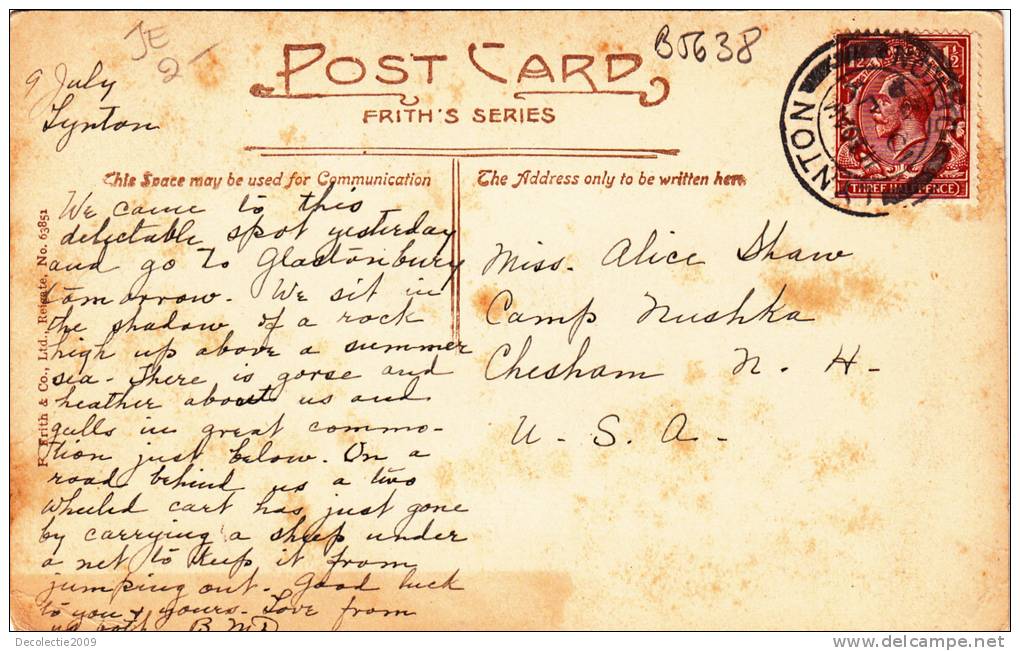 JE
2-
B5638
POST CARD
FRITH'S SERIES
9 July
Lynton
This Space may be used for Communication
The Address only to be written here.
We came to this
delectable spot yesterday
and go to Glastonbury
tomorrow. We sit in
the shadow of a rock
high up above a summer
sea. There is gorse and
heather about us and
gulls in great commo-
tion just below. On a
road behind us a two
wheeled cart has just gone
by carrying a sheep under
a net to keep it from
jumping out. Good luck
to you & yours. Love from
us both
Miss. Alice Shaw
Camp Nushka
Chesham N. H.
U. S. A.
F. Frith & Co., Ltd., Reigate, No. 63851
LYNTON
THREE HALFPENCE
Decolectie2009